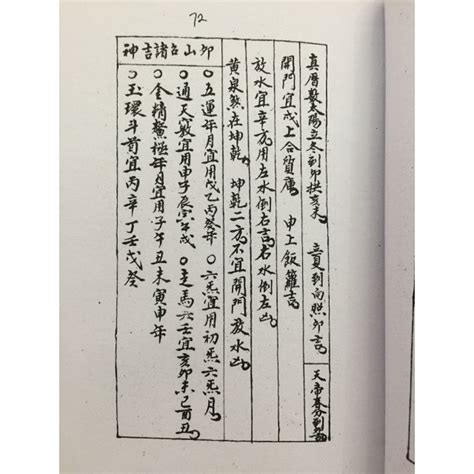 72
真曆數太陽立冬到卯拱亥未 立夏到向照卯吉 天帝春分到卯
開門宜戌上合質庫 申上飯籮吉
放水宜辛方用左水倒右吉右水倒左凶
黃泉煞在坤乾 坤乾二方不宜開門放水凶
卯山召諸吉神
○五運年月宜用戊乙丙癸年 ○六炁宜用初炁六炁月
○通天竅宜用申子辰寅午戌 ○走馬六壬宜亥卯未巳酉丑
○金精鰲極年月宜用子午丑未寅申年
○玉環斗首宜丙辛丁壬戊癸